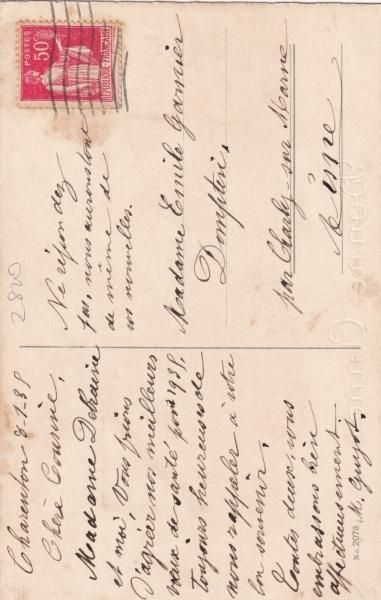 Charenton 8-1-35
Chère Cousine,
Madame Delraine
et moi, vous prions
d'agréer nos meilleurs
vœux de santé pour 1935,
toujours heureuses de
nous rappeler à votre
bon souvenir.
Toutes deux, vous
embrassons bien
affectueusement
M. Guyot.
Ne répondez
pas, nous aurons tout
de même de
vos nouvelles.
POSTES
50c
REPUBLIQUE FRANÇAISE
Madame Emile Garnier
Domptin,
par Charly-sur-Marne
Aisne
2800
No. 2078